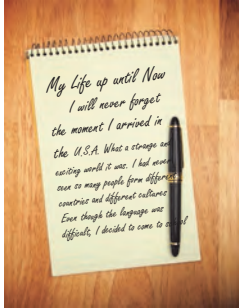 My Life up until Now
I will never forget
the moment I arrived in
the U.S.A. What a strange and
exciting world it was. I had never
seen so many people form different
countries and different cultures
Even though the language was
difficult, I decided to come to school